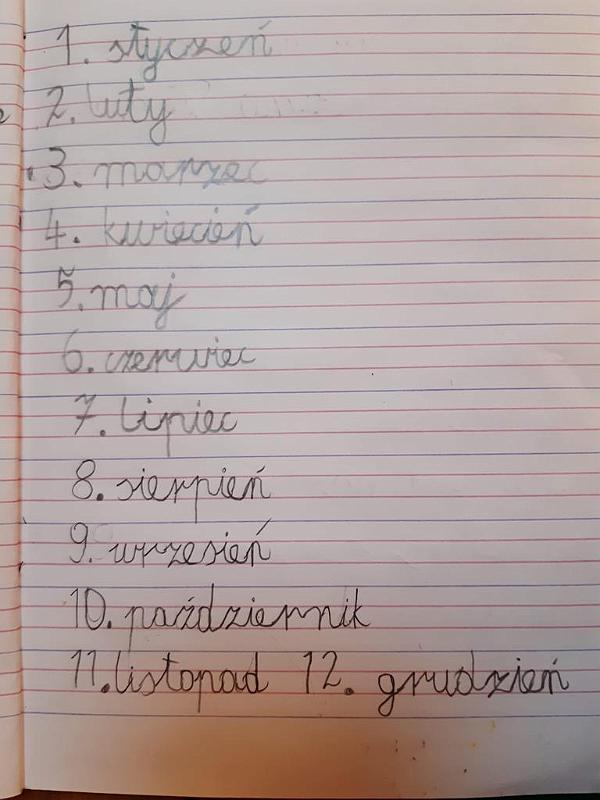 1. styczeń
2. luty
3. marzec
4. kwiecień
5. maj
6. czerwiec
7. lipiec
8. sierpień
9. wrzesień
10. październik
11. listopad 12. grudzień